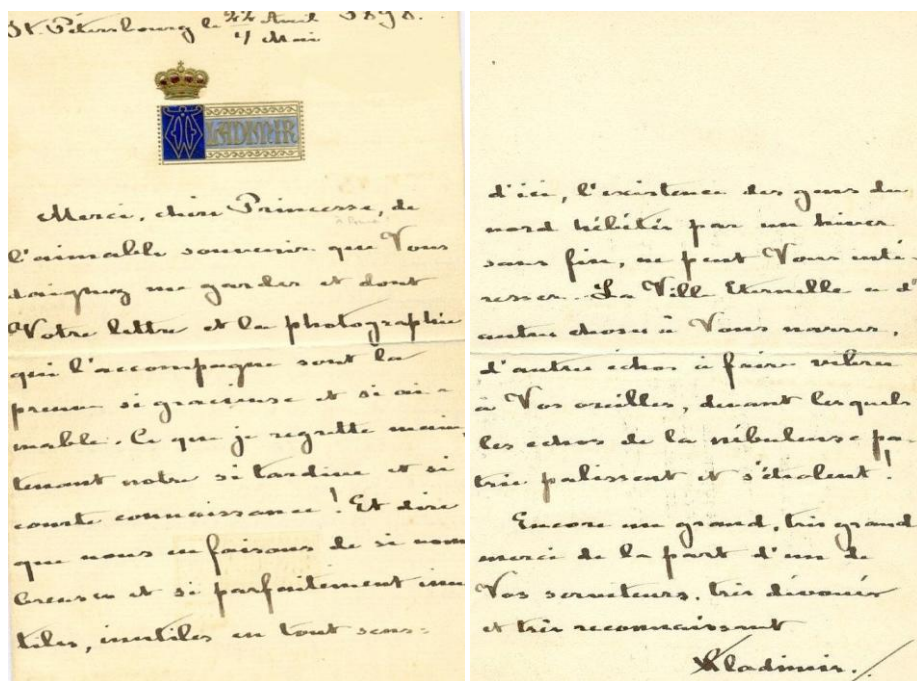 St. Pétersbourg le 22 Avril 1898.
4 Mai
WLADIMIR
Merci, chère Princesse, de
l'aimable souvenir que Vous
daignez me garder et dont
Votre lettre et la photographie
qui l'accompagne sont la
preuve si gracieuse et si ai-
mable. Ce que je regrette main
tenant notre si tardive et si
courte connaissance! Et dire
que nous en faisons de si nom
breuses et si parfaitement inu
tiles, inutiles en tout sens:
d'ici, l'existence des gens du
nord hébétés par un hiver
sans fin, ne peut Vous inté-
resser. La Ville Eternelle a d'
autres choses à Vous narrer,
d'autres échos à faire vibrer
à Vos oreilles, devant lesquels
les échos de la nébuleuse pa-
trie palissent et s'étiolent!
Encore un grand, très grand
merci de la part d'un de
Vos serviteurs, très dévoués
et très reconnaissant
Wladimir.